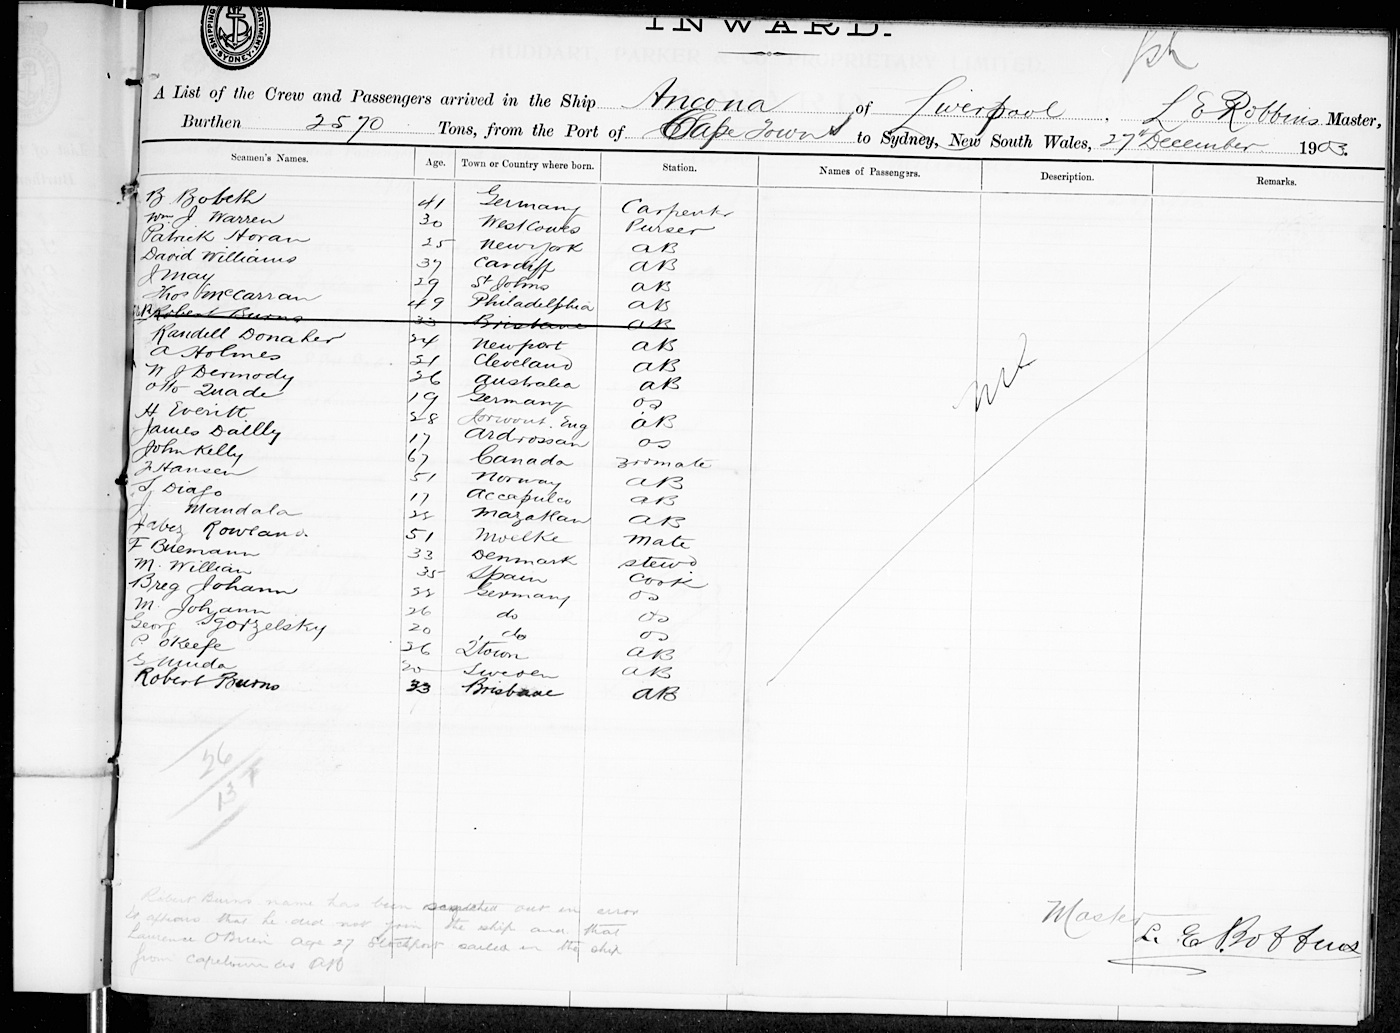 SHIPPING DEPARTMENT SYDNEY
INWARD.
A List of the Crew and Passengers arrived in the Ship Ancona of Liverpool, L E Robbins Master,
Burthen 2570 Tons, from the Port of Cape Town to Sydney, New South Wales, 27th December 1903.
Seamen's Names. Age. Town or Country where born. Station. Names of Passengers. Description. Remarks.
B Bobeth 41 Germany Carpenter
Wm J Warren 30 West Cowes Purser
Patrick Horan 25 New York AB
David Williams 37 Cardiff AB
J May 29 St Johns AB
Thos McCarran 49 Philadelphia AB
Robert Burns 33 Brisbane AB
Randell Donaher 24 Newport AB
A Holmes 21 Cleveland AB
W J Dermody 26 Australia AB
Otto Quade 19 Germany OS
H Everitt 28 Eng AB
James Dailly 17 Ardrossan OS
John Kelly 67 Canada 2nd mate
J Hansen 51 Norway AB
Diago 17 Accapulco AB
J Mandala 22 Mazatlan AB
Jabez Rowland. 51 Mate
F Buemann 33 Denmark stewd
M. Willian 35 Spain Cook
Breg Johann 22 Germany OS
M. Johann 26 do OS
Georg Sgorzelsky 20 do OS
P. O'Keefe 26 Qtown AB
20 Sweden AB
Robert Burns 33 Brisbane AB
Nil
26
13
Robert Burns name has been scratched out in error
It appears that he did not join the ship and that
Laurence O'Brien age 27 Stockport sailed in the ship
from Capetown as AB
Master
L. E. Robbins